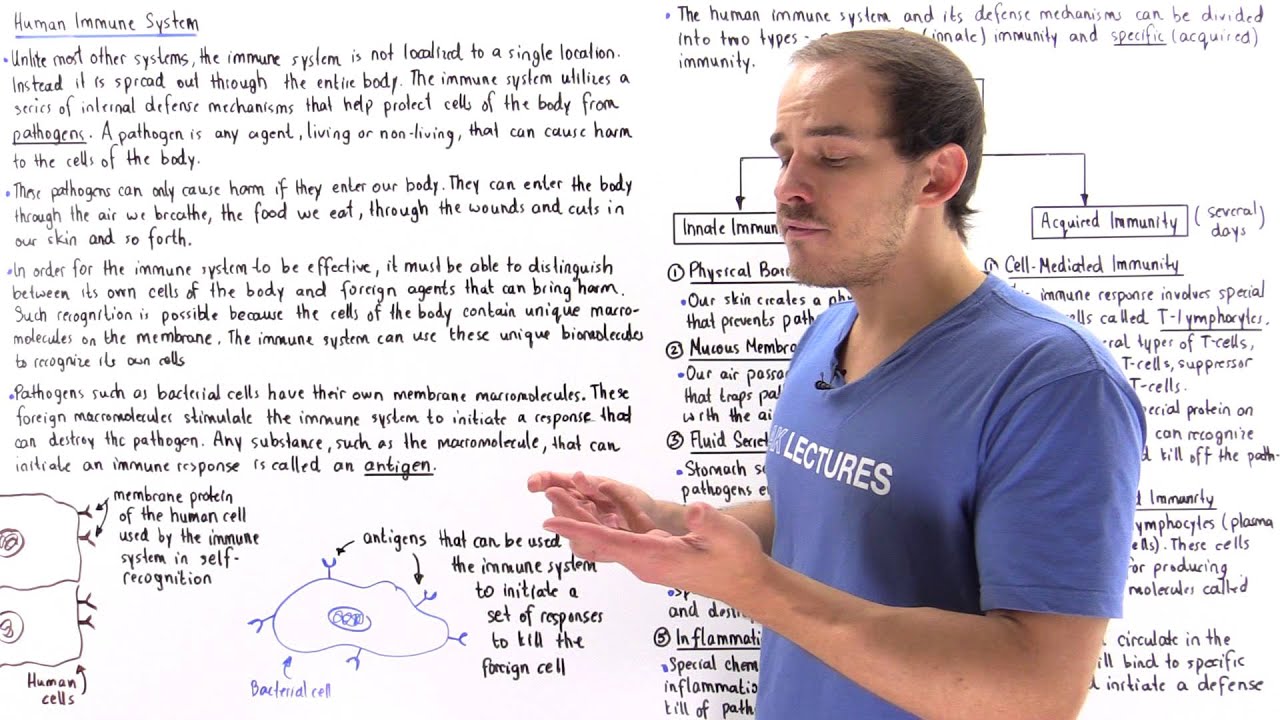 Human Immune System
• Unlike most other systems, the immune system is not localized to a single location.
Instead it is spread out through the entire body. The immune system utilizes a
series of internal defense mechanisms that help protect cells of the body from
pathogens. A pathogen is any agent, living or non-living, that can cause harm
to the cells of the body.
• These pathogens can only cause harm if they enter our body. They can enter the body
through the air we breathe, the food we eat, through the wounds and cuts in
our skin and so forth.
• In order for the immune system to be effective, it must be able to distinguish
between its own cells of the body and foreign agents that can bring harm.
Such recognition is possible because the cells of the body contain unique macro-
molecules on the membrane. The immune system can use these unique biomolecules
to recognize its own cells
• Pathogens such as bacterial cells have their own membrane macromolecules. These
foreign macromolecules stimulate the immune system to initiate a response that
can destroy the pathogen. Any substance, such as the macromolecule, that can
initiate an immune response is called an antigen.
membrane protein
of the human cell
used by the immune
system in self-
recognition
Human
cells
antigens that can be used
the immune system
to initiate a
set of responses
to kill the
foreign cell
Bacterial cell
• The human immune system and its defense mechanisms can be divided
into two types - (innate) immunity and specific (acquired)
immunity.
Innate
① Physical
• Our skin creates a
that prevents
② Mucous
• Our air
that traps
with the
③ Fluid
• Stomach
pathogens
and
⑤
• Special
kill of
LECTURES
Acquired Immunity (several)
days
① Cell-Mediated Immunity
immune response involves special
called T-lymphocytes.
types of T-cells,
T-cells, suppressor
T-cells.
protein on
can recognize
kill off the path-
Immunity
(plasma
These cells
for producing
molecules called
circulate in the
bind to specific
initiate a defense